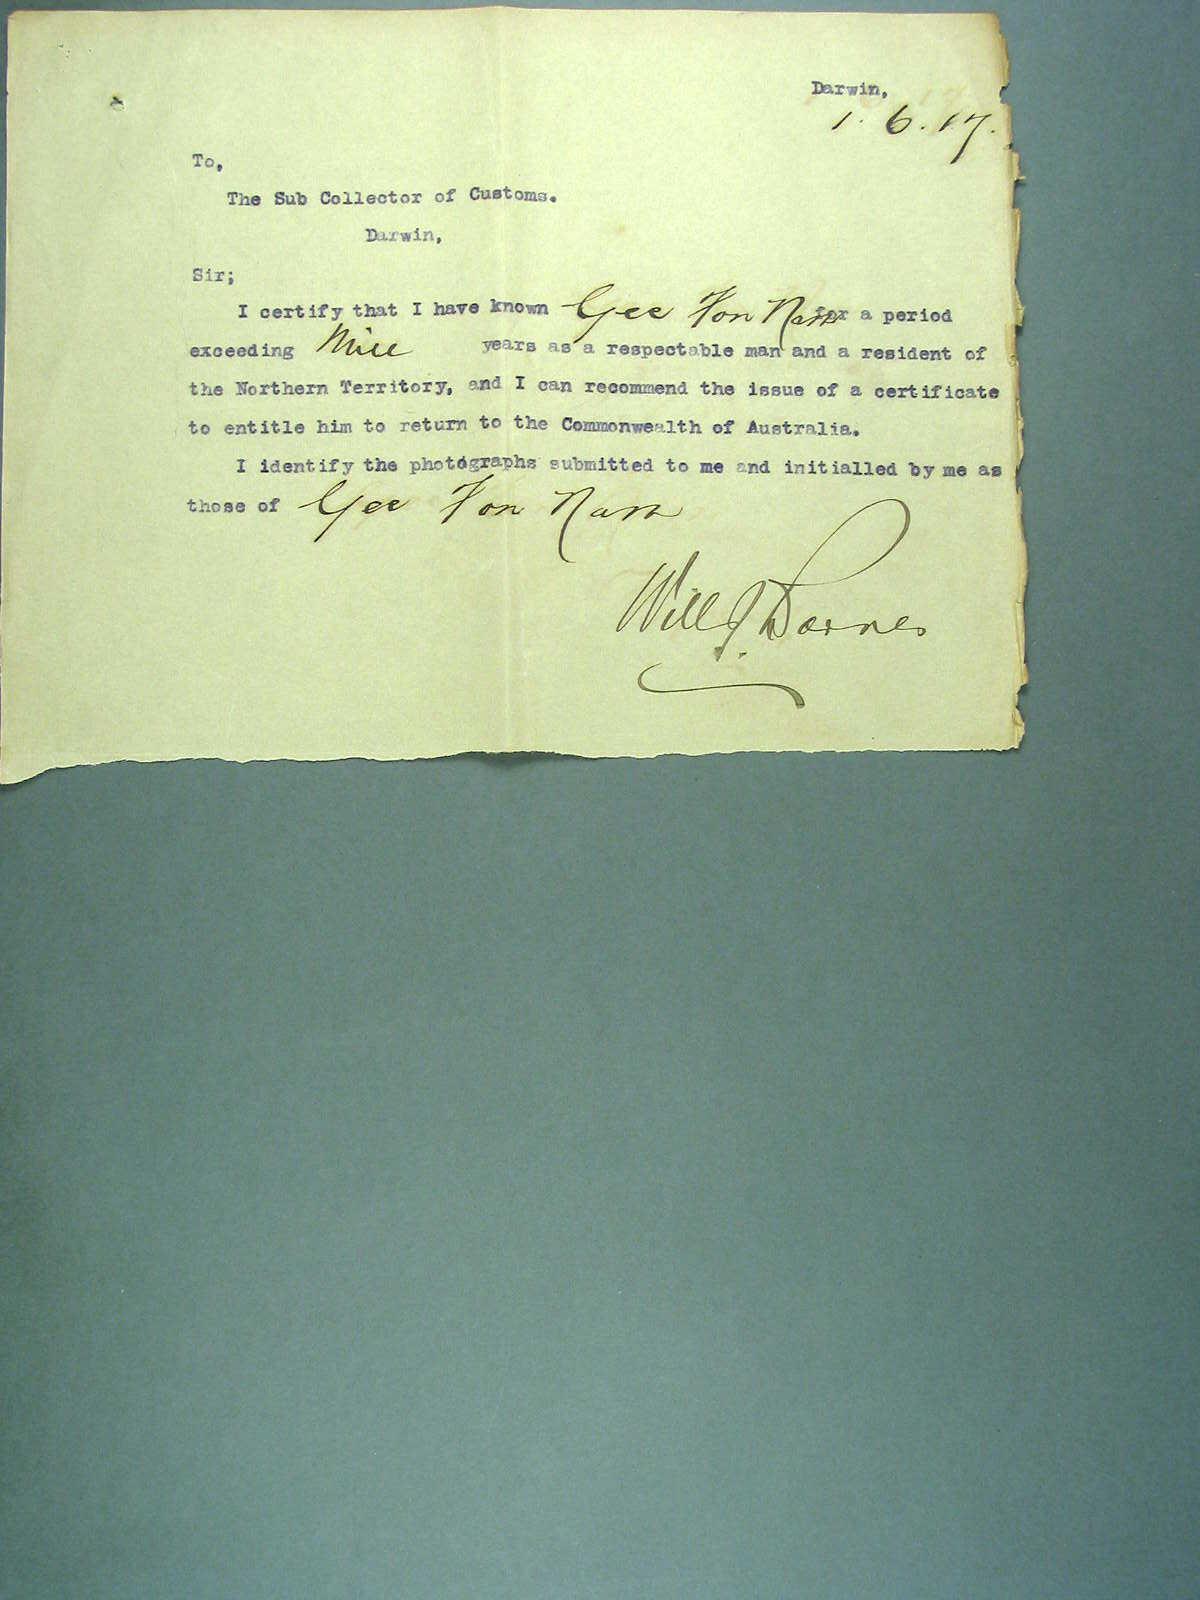 Darwin,
1.6.17.
To,
The Sub Collector of Customs.
Darwin,
Sir;
I certify that I have known Gee Fon Nam for a period
exceeding Nine years as a respectable man and a resident of
the Northern Territory, and I can recommend the issue of a certificate
to entitle him to return to the Commonwealth of Australia.
I identify the photographs submitted to me and initialled by me as
those of Gee Fon Nam
Will J Barnes